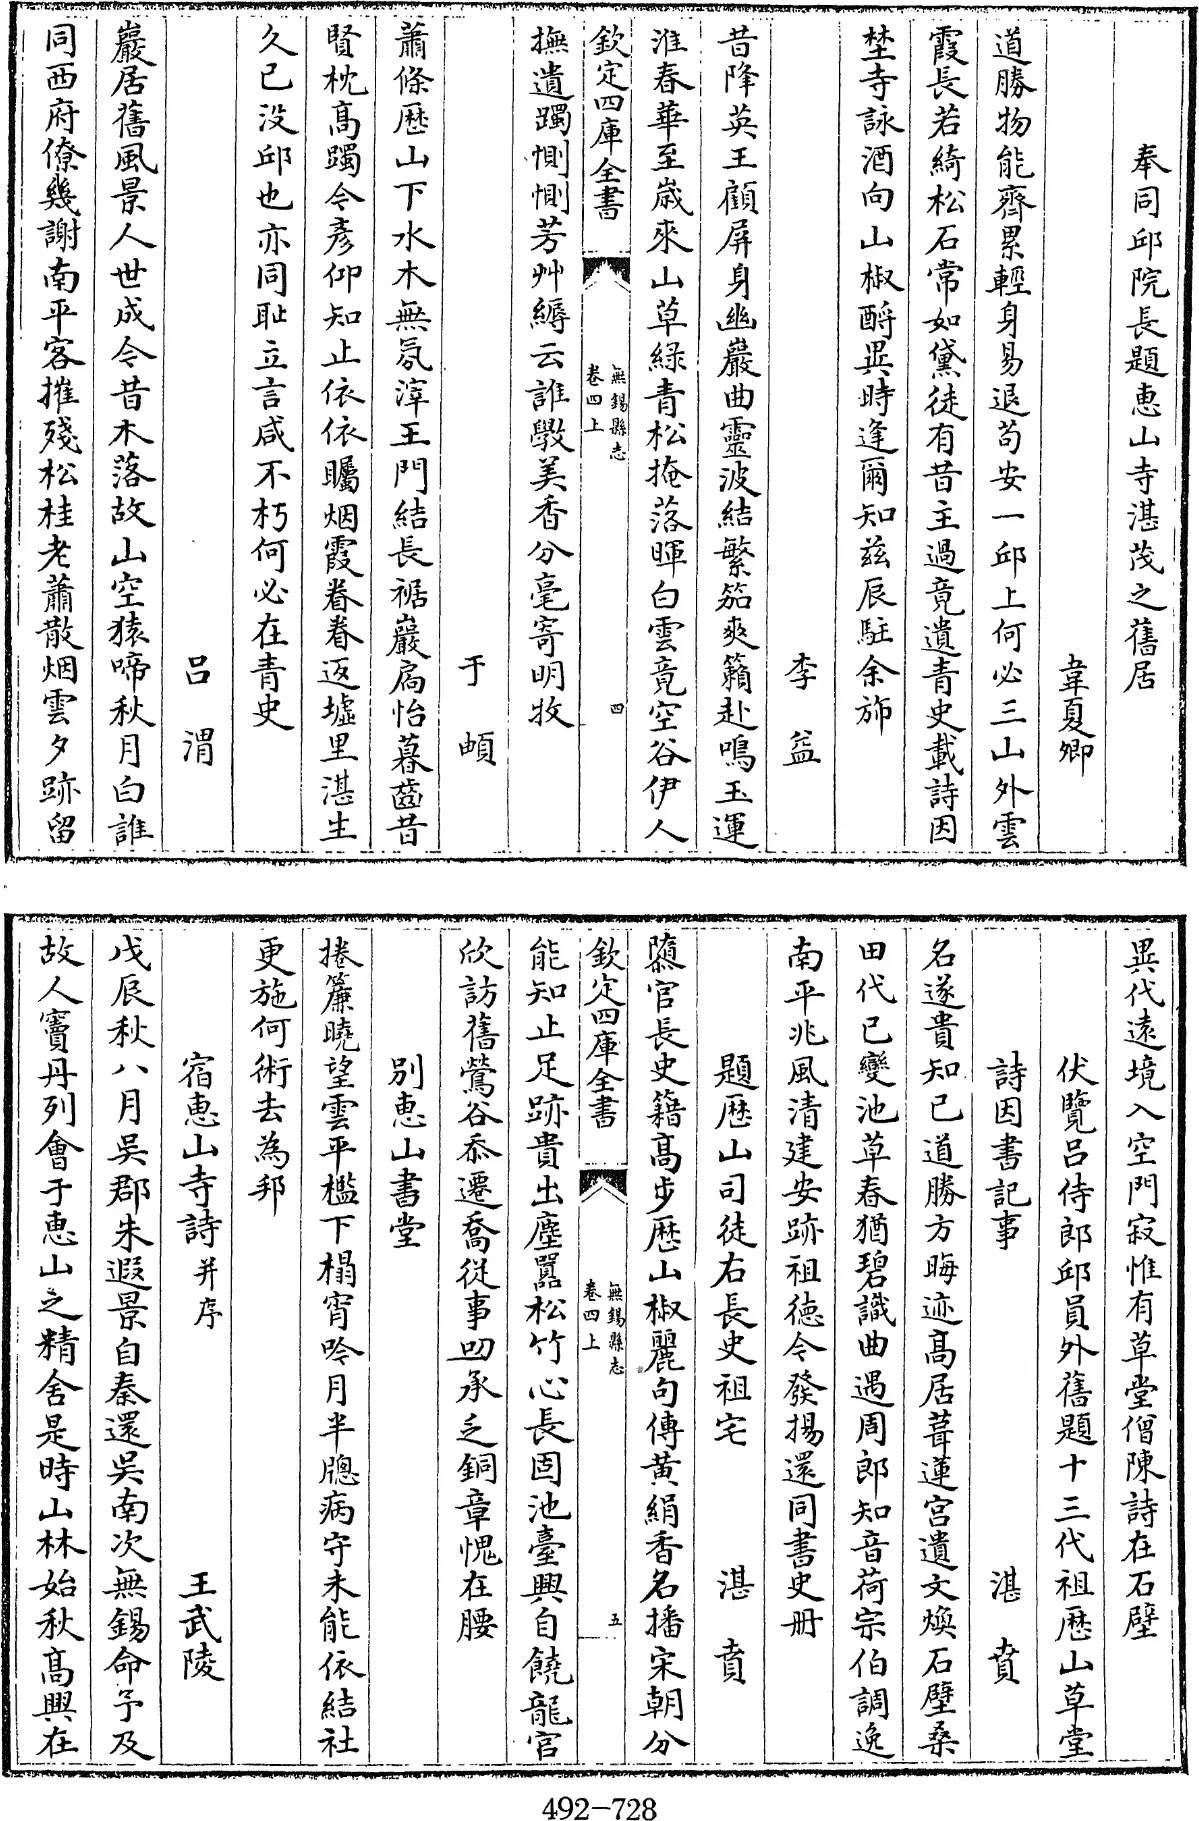 奉同邱院長題惠山寺湛茂之舊居
韋夏卿
道勝物能齊累輕身易退苟安一邱上何必三山外雲
霞長若綺松石常如黛徒有昔主過竟遺青史載詩因
埜寺詠酒向山椒酹異時逢爾知兹辰駐余斾
李益
昔降英王顧屏身幽巖曲靈波結繁笳爽籟赴鳴玉運
淮春華至歲來山草緑青松掩落暉白雲竟空谷伊人
欽定四庫全書
無錫縣志
卷四上
四
撫遺躅惻惻芳艸縟云誰斅美香分毫寄明牧
于頔
蕭條歴山下水木無氛滓王門結長裾巖扃怡暮齒昔
賢枕高躅今彦仰知止依依矚烟霞眷眷返墟里湛生
久已没邱也亦同耻立言咸不朽何必在青史
吕渭
巖居舊風景人世成今昔木落故山空猿啼秋月白誰
同西府僚幾謝南平客摧殘松桂老蕭散烟雲夕跡留
異代遠境入空門寂惟有草堂僧陳詩在石壁
伏覽吕侍郎邱員外舊題十三代祖歴山草堂
詩因書記事
湛賁
名遂貴知己道勝方晦迹高居葺蓮宫遺文煥石壁桑
田代已變池草春猶碧識曲遇周郎知音荷宗伯調逸
南平兆風清建安跡祖徳今發揚還同書史册
題歴山司徒右長史祖宅
湛賁
隳官長史籍高步歴山椒麗句傳黄絹香名播宋朝分
欽定四庫全書
無錫縣志
卷四上
五
能知止足跡貴出塵囂松竹心長固池臺興自饒龍宫
欣訪舊鶯谷忝遷喬從事叨承乏銅章愧在腰
别惠山書堂
捲簾曉望雲平檻下榻宵吟月半牕病守未能依結社
更施何術去為邦
宿惠山寺詩并序
王武陵
戊辰秋八月吳郡朱遐景自秦還吳南次無錫命予及
故人竇丹列會于惠山之精舍是時山林始秋高興在
492-728